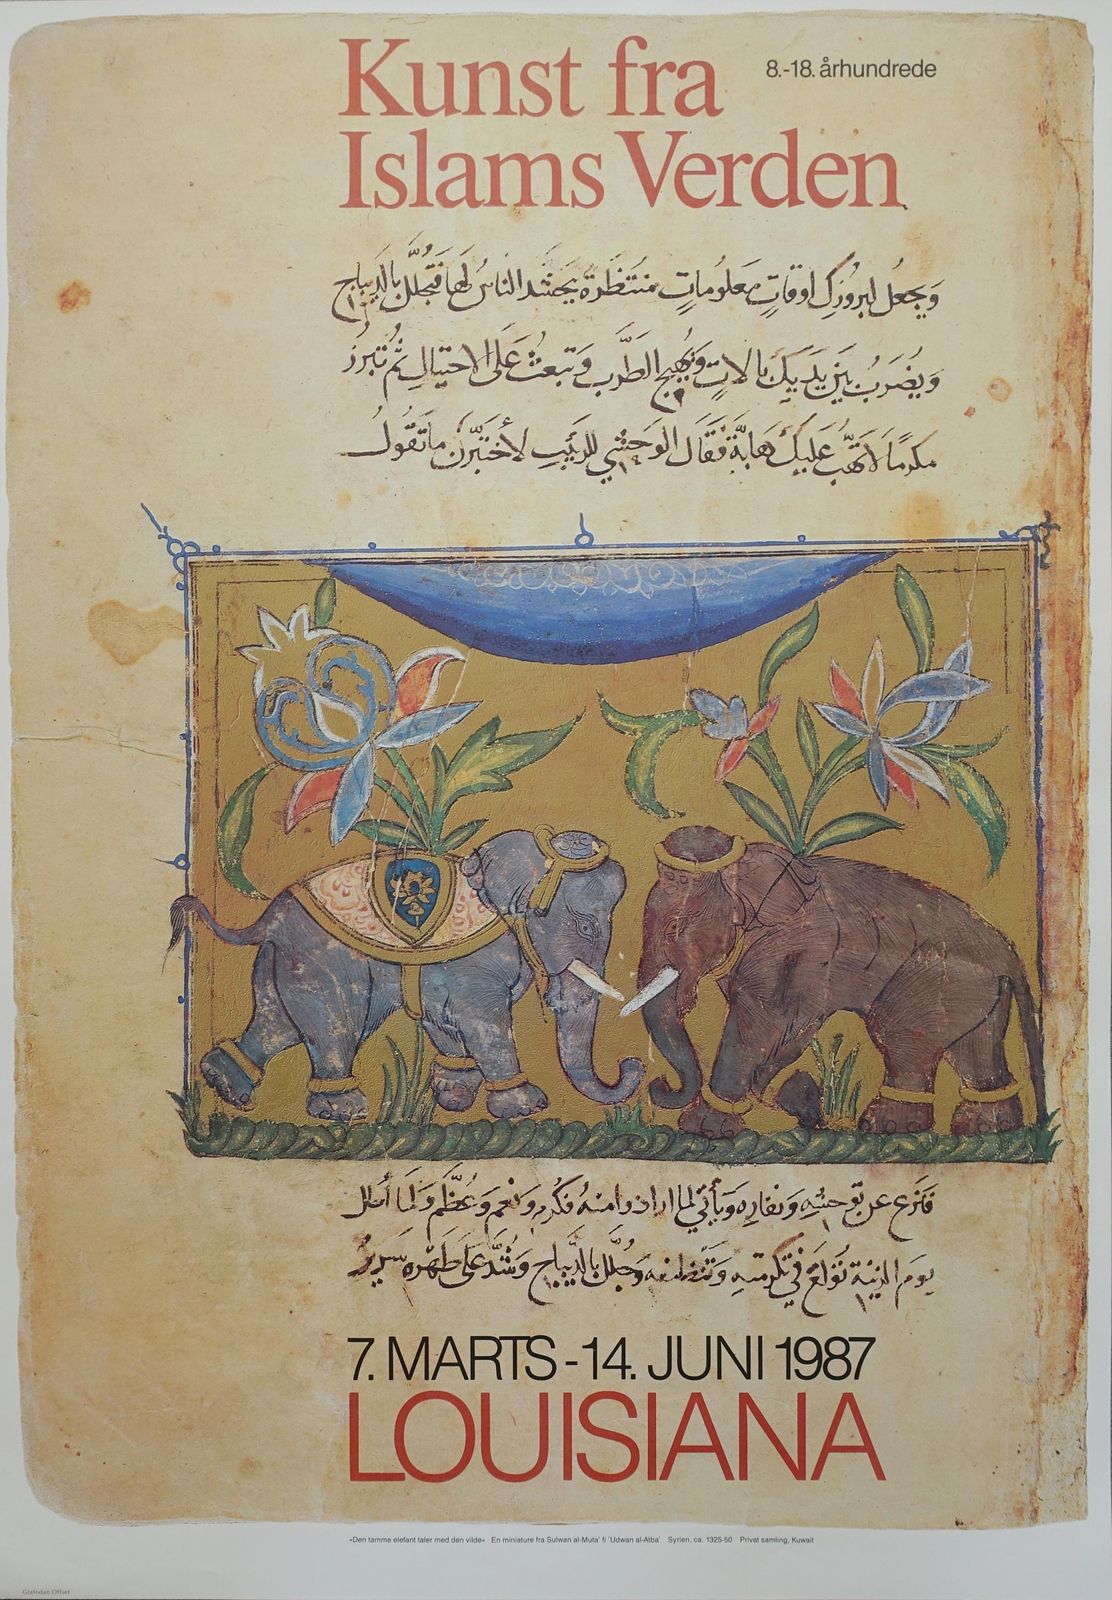 Kunst fra
8.-18. århundrede
Islams Verden
وَيجعل لبروزك اوقاتٍ معلُوماتٍ منتظرة يحتشد الناسُ لها فتجلل بالديباج
وَيُضرَبُ بَيْنَ يَدَيكَ بالاتٍ وَيهيج الطَّرب وَتبعثُ عَلَى الاحتيالِ ثم تبرز
مكرمًا لا تهبّ عليك هابّة فَقَال الوَحشي للربيب لأختبرن ما تقول
فنزع عن توحشه وَنفاره وَيأتي لما اراد وامنه فكرم ونعم وَعُظّم وَلما أطل
يومَ الزينة تُولغ في تكرمته وَتنظيفه وَجُلّل بالديباج وَشُدَّ عَلَى ظهره سَرير
7. MARTS - 14. JUNI 1987
LOUISIANA
«Den tamme elefant taler med den vilde» En miniature fra Sulwan al-Muta' fi 'Udwan al-Atba' Syrien, ca. 1325-50 Privat samling, Kuwait
Grafodan Offset